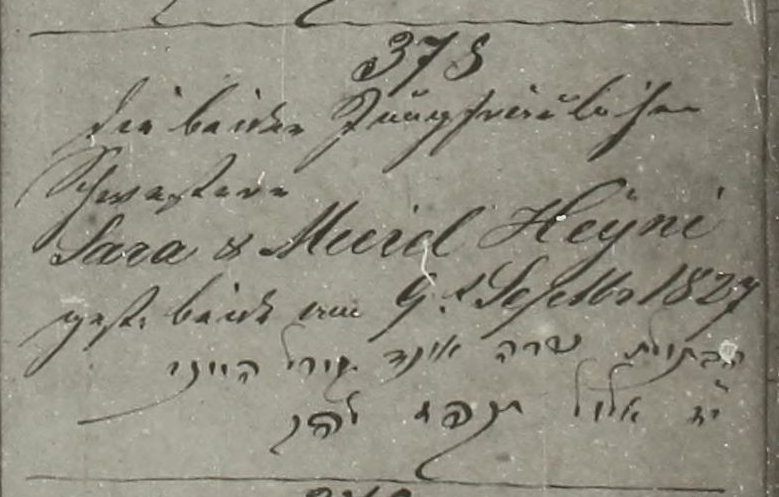 378
die beiden Jungfräulichen
Schwestern
Sara & Meriel Heÿne
gest. beide am 9. Septbr 1827
הבתולות שרה אונד מורל היינו
אלול תקפז